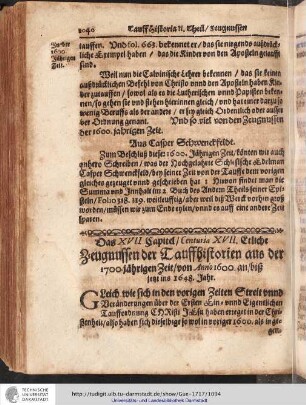 1040
Tauffhistoria II. Theil / Zeugnussen
In der
1600
Jährigen
Zeit.
tauffen. Und fol. 663. bekennet er / das sie nirgends außtrück-
liche Exempel haben / das die Kinder von den Aposteln getaufft
sind.
Weil nun die Calvinische Lehrer bekennen / das sie keinen
außtrücklichen Befelch von Christo unnd den Aposteln haben Kin-
der zutauffen / sowol als es die Lutherischen unnd Päpsten beken-
nen / so gehen sie und stehen hierinnen gleich / und hat einer darzu so
wenig Beruffs als der ander / er sey gleich Ordentlich oder ausser
der Ordnung genant. Und so viel von den Zeugnussen
der 1600. jährigen Zeit.
Aus Casper Schwenckfeldt.
Zum Beschluß dieser 1600. Jährigen Zeit / könten wir auch
einhero Schreiben / was der Hochgelahrte Schlesische Edelman
Casper Schwenckfeld / bey seiner Zeit von der Tauffe dem vorigen
gleiches gezeuget unnd geschrieben hat : Hievon findet man die
Summa und Innhalt im 2. Buch des Andern Theils seiner Epi-
steln / Folio 318. 319. weitleufftig / aber weil diß Werck vorhin groß
worden / müssen wir zum Ende eylen / unnd es auff eine andere Zeit
sparen.
Das XVII Capittel / Centuria XVII. Etliche
Zeugnussen der Tauffhistorien aus der
1700 jährigen Zeit / von Anno 1600 an / biß
jetzt ins 1648. Jahr.
Gleich wie sich in den vorigen Zeiten Streit unnd
Veränderungen über der Ersten Ein- unnd Eigentlichen
Tauffordnung CHRisti JEsu haben erreget in der Chri-
stenheit / also haben sich dißfals so wol in voriger 1600. als in gegen-
gen.
TECHNISCHE
UNIVERSITÄT
DARMSTADT
http://tudigit.ulb.tu-darmstadt.de/show/Gue-1717/1094
Universitäts- und Landesbibliothek Darmstadt